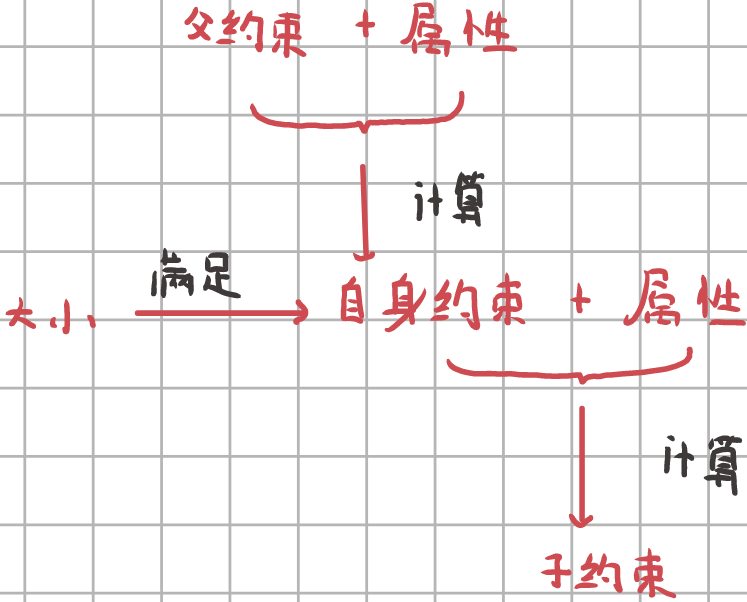 父约束 + 属性
计算
满足
大小 自身约束 + 属性
计算
子约束